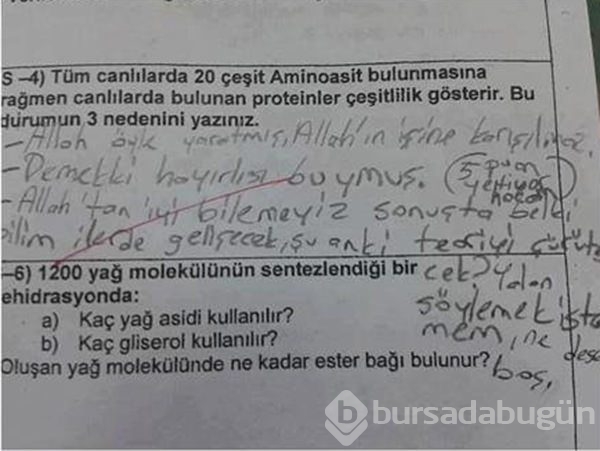 S –4) Tüm canlılarda 20 çeşit Aminoasit bulunmasına
rağmen canlılarda bulunan proteinler çeşitlilik gösterir. Bu
durumun 3 nedenini yazınız.
– Allah öyle yaratmış, Allah'ın işine karışılmaz.
– Demekki hayırlısı buymuş. (5 puan yetiyor hocam)
– Allah'tan iyi bilemeyiz sonuçta belki
bilim ilerde gelişecek, şu anki teoriyi çürüte
cek? Yalan
söylemek iste
mem, ne desem
boş,
–6) 1200 yağ molekülünün sentezlendiği bir
ehidrasyonda:
a) Kaç yağ asidi kullanılır?
b) Kaç gliserol kullanılır?
Oluşan yağ molekülünde ne kadar ester bağı bulunur?
b bursadabugün